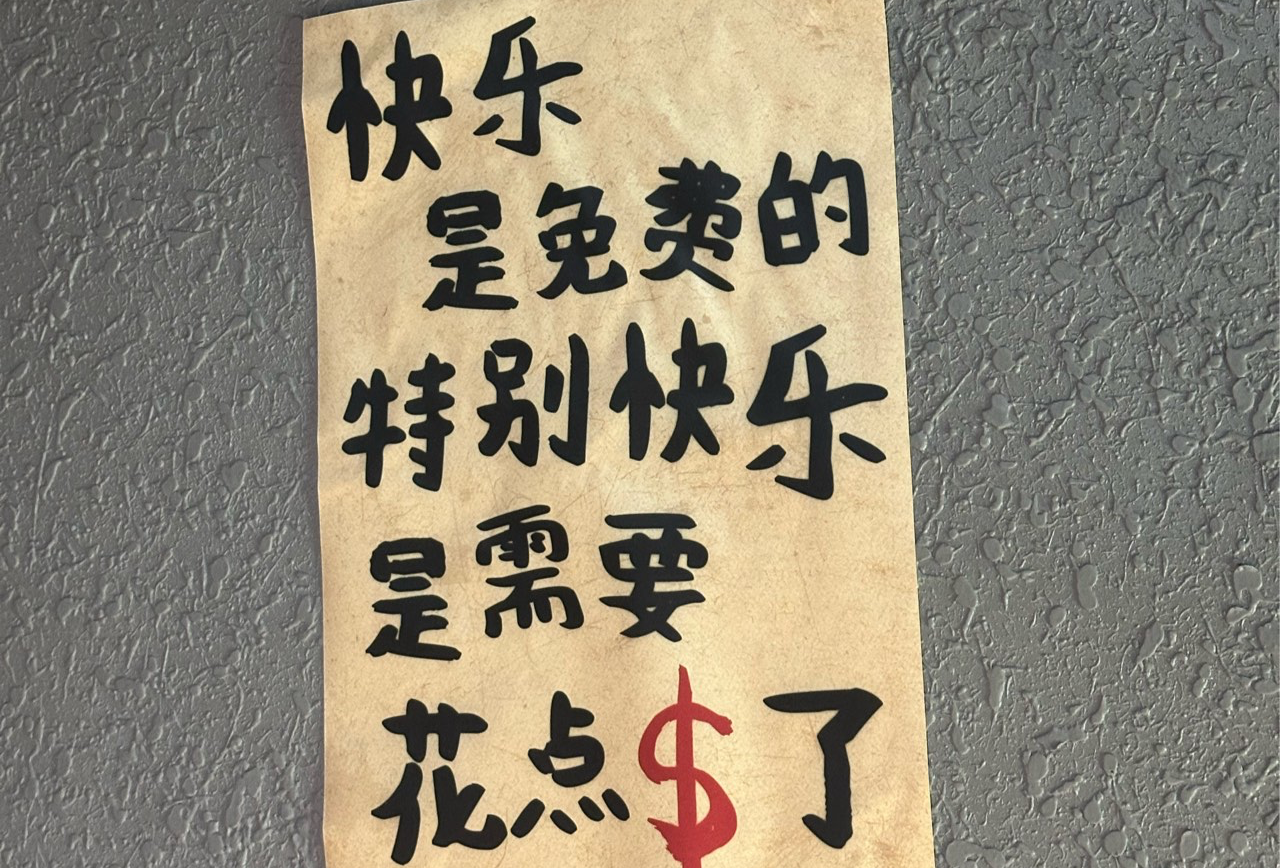 快乐
是免费的
特别快乐
是需要
花点$了